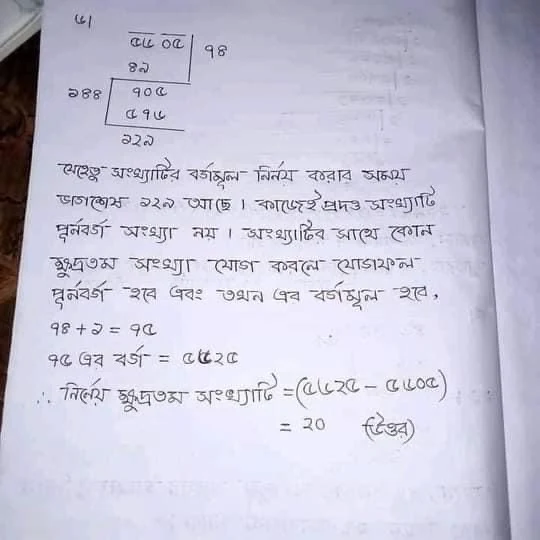 ৬।
৫৬ ০৫ | ৭৪
৪৯
১৪৪ | ৭০৫
৫৭৬
১২৯
যেহেতু সংখ্যাটির বর্গমূল নির্নয় করার সময়
ভাগশেষ ১২৯ আছে। কাজেই প্রদত্ত সংখ্যাটি
পূর্নবর্গ সংখ্যা নয়। সংখ্যাটির সাথে কোন
ক্ষুদ্রতম সংখ্যা যোগ করলে যোগফল
পূর্নবর্গ হবে এবং তখন এর বর্গমূল হবে,
৭৪ + ১ = ৭৫
৭৫ এর বর্গ = ৫৬২৫
∴ নির্নেয় ক্ষুদ্রতম সংখ্যাটি = (৫৬২৫ - ৫৬০৫)
= ২০ (উত্তর)